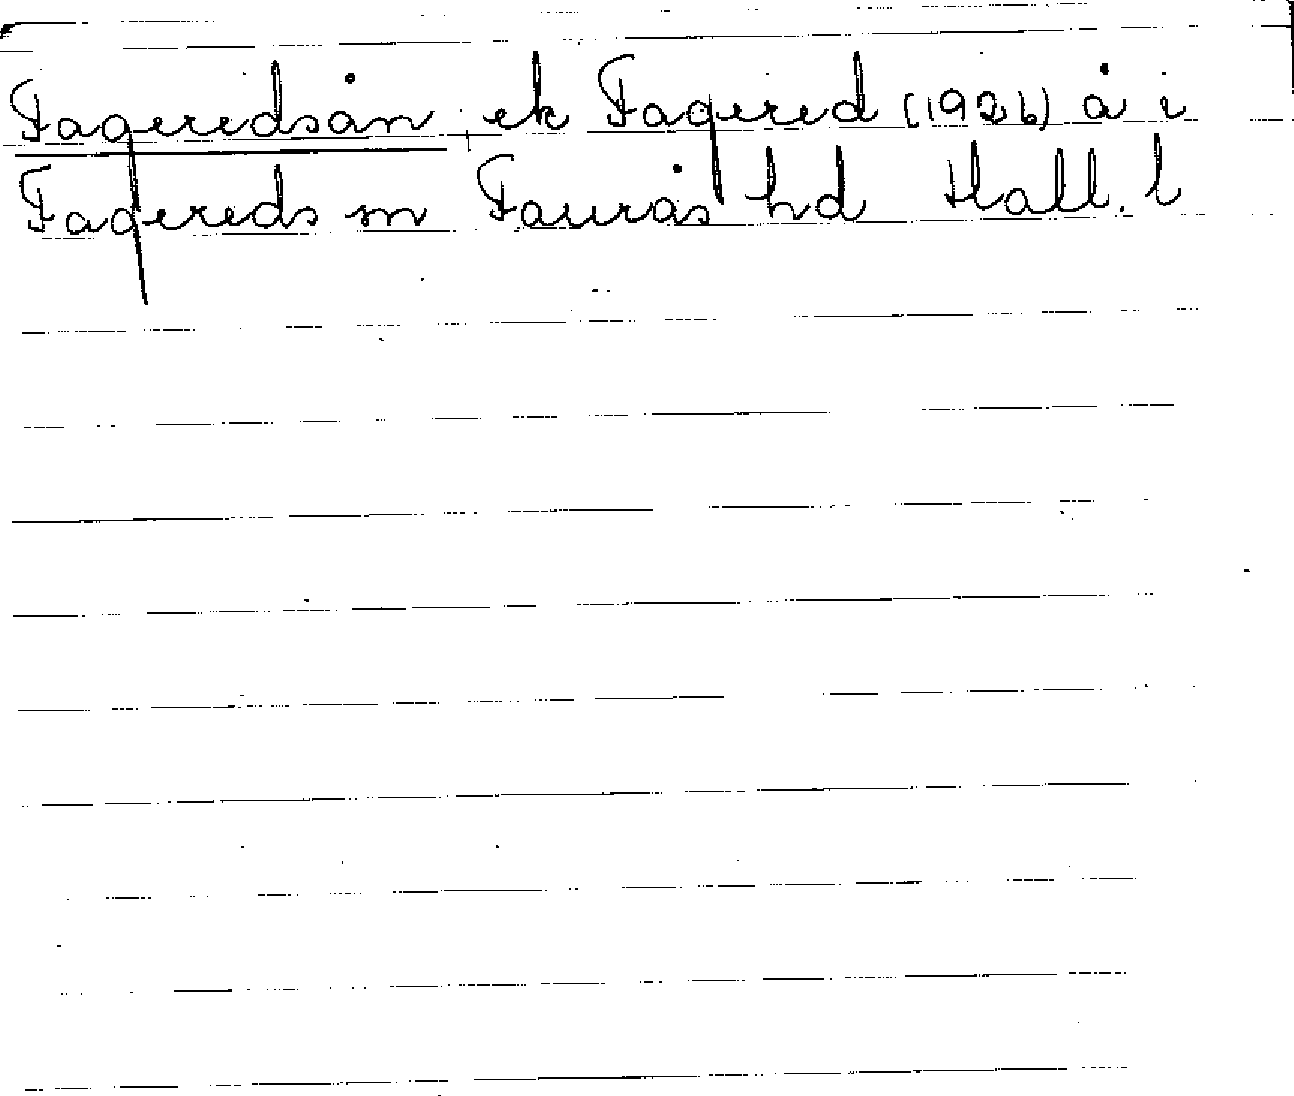 Fageredsån, ek Fagered (1926) å i
Fagereds sn Faurås hd Hall. l